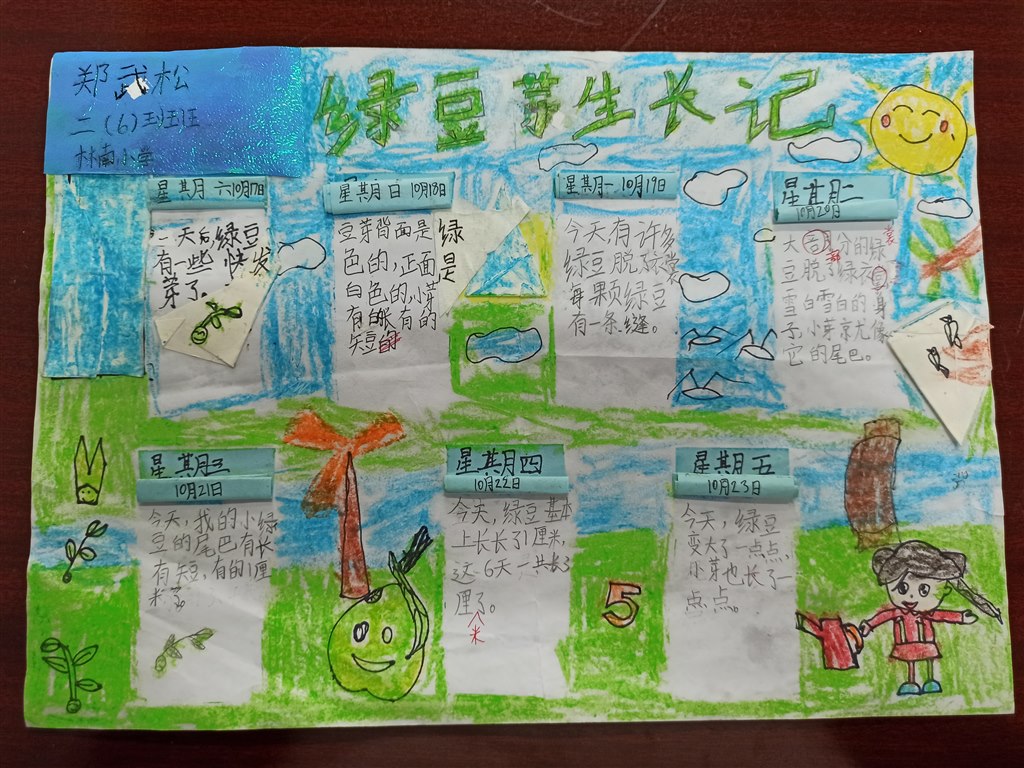 郑武松
二(6)班
林南小学
绿豆芽生长记
星其月六10月17日
一天后,绿豆
有一些快发
芽了。
星其月日10月18日
豆芽背面是绿
色的,正面是
白色的,小芽
有的长有的
短
星其月一10月19日
今天,有许多
绿豆脱了衣裳
每颗绿豆
有一条缝。
星其月二
10月20日
大部分的绿
豆脱了绿衣裳
雪白雪白的身
子,小芽京尤像
它的尾巴。
星其月三
10月21日
今天,我的小绿
豆的尾巴有长
有短,有的1厘
米了。
星其月四
10月22日
今天,绿豆基本
上长长了1厘米,
这6天一共长3
厘米了。
星其月五
10月23日
今天,绿豆
变大了一点点,
小芽也长了一
点点。
5